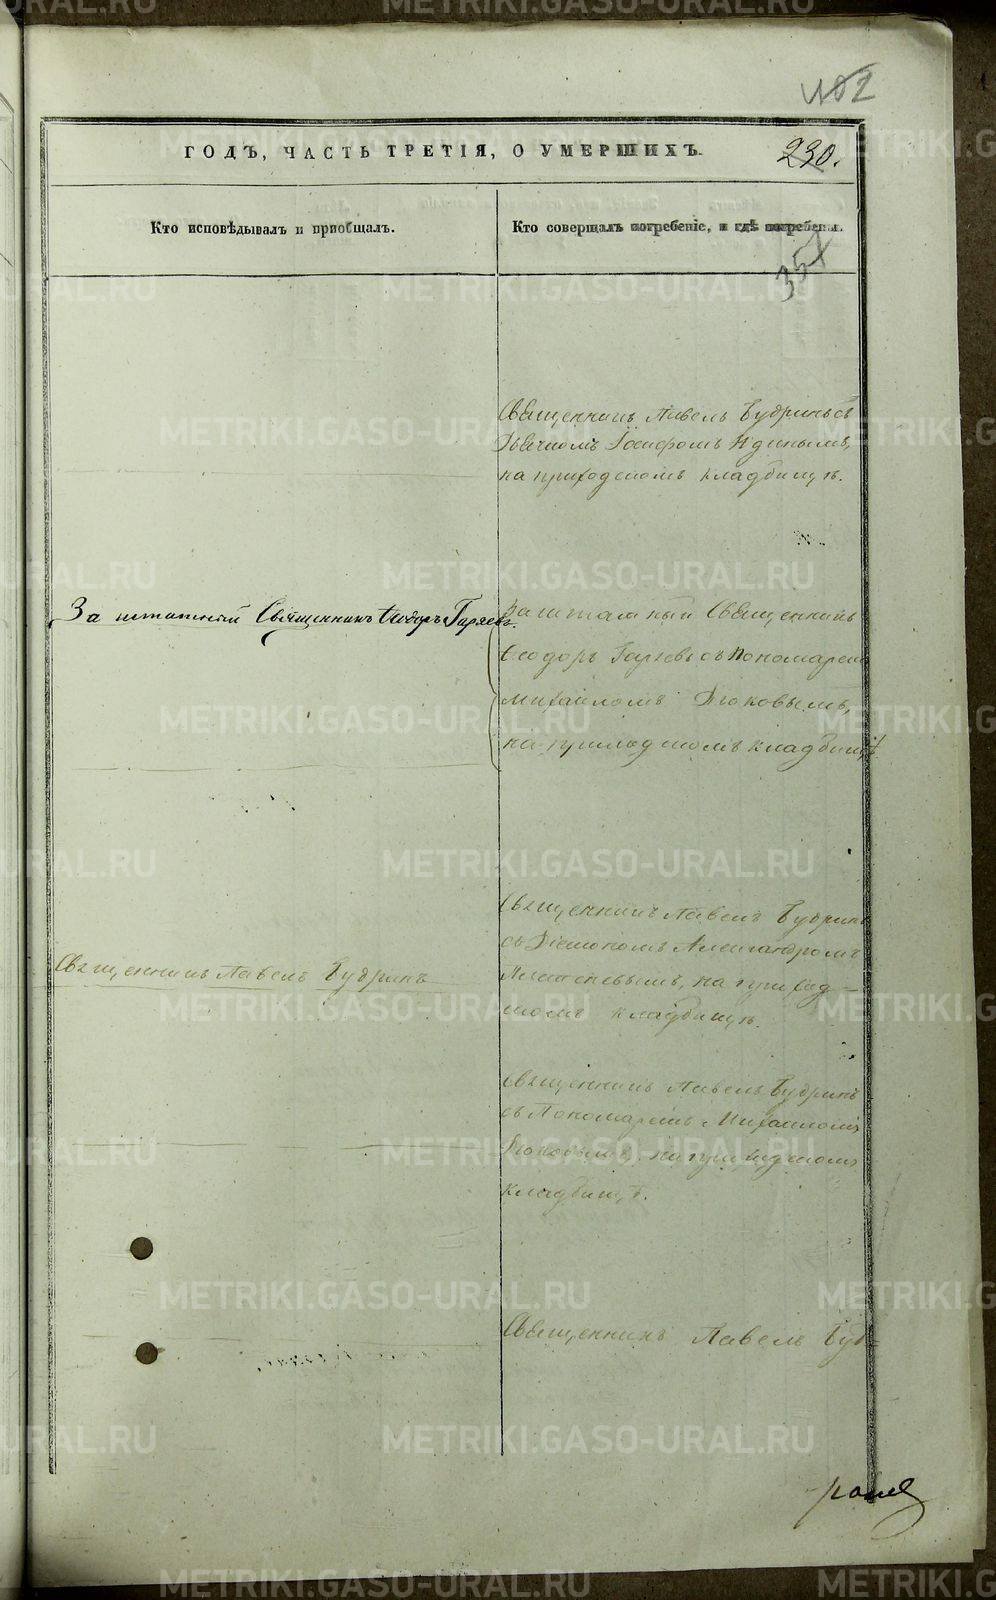 402
ГОДЪ, ЧАСТЬ ТРЕТІЯ, О УМЕРШИХЪ.
230.
Кто исповѣдывалъ и пріобщалъ.
Кто совершалъ погребеніе, и гдѣ погребены.
357
Священникъ Павелъ Будринъ съ
Дьячкомъ Іосифомъ
на приходскомъ кладбищѣ.
За штатный Священникъ Ѳеодоръ Гаряевъ.
Заштатный Священникъ
Ѳеодоръ Гаряевъ съ Пономаремъ
Михаиломъ
на приходскомъ кладбищѣ
Священникъ Павелъ Будринъ
Священникъ Павелъ Будринъ
съ Діакономъ Александромъ
на приход-
скомъ кладбищѣ.
Священникъ Павелъ Будринъ
съ Пономаремъ Михаиломъ
на приходскомъ
кладбищѣ.
Священникъ Павелъ Буд-
METRIKI.GASO-URAL.RU